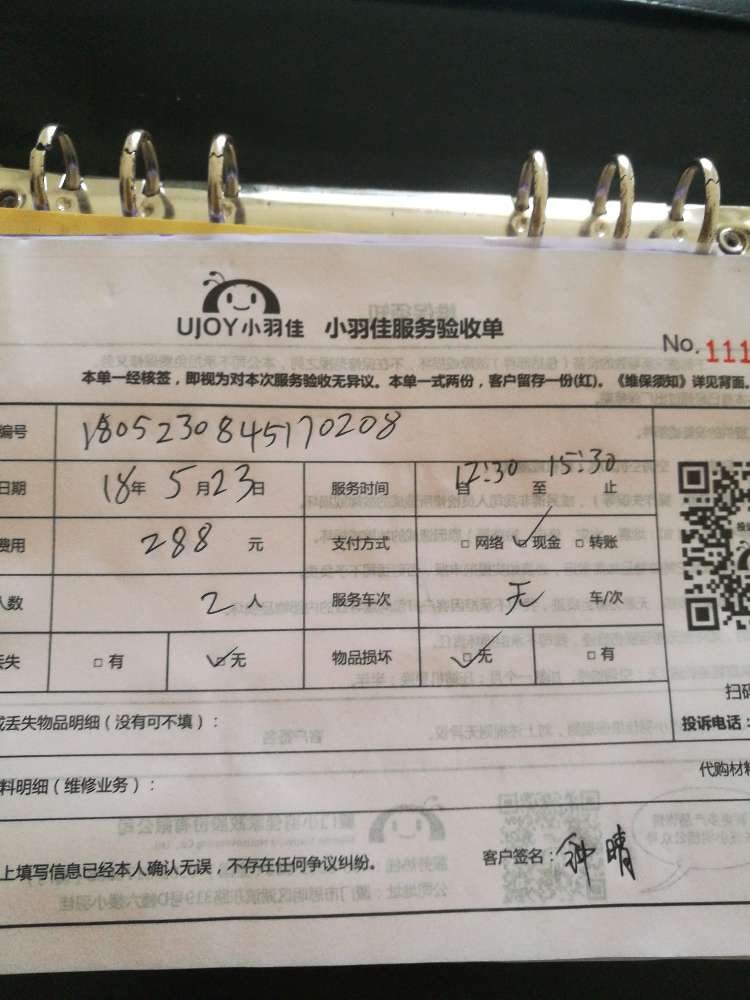 UJOY小羽佳 小羽佳服务验收单
No. 111
本单一经核签，即视为对本次服务验收无异议。本单一式两份，客户留存一份(红)。《维保须知》详见背面。
编号 1805230845170208
日期 18年 5月23日 服务时间 自12:30至15:30止
费用 288 元 支付方式 □网络 ☑现金 □转账
人数 2人 服务车次 无 车/次
丢失 □有 ☑无 物品损坏 ☑无 □有
扫码
或丢失物品明细（没有可不填）： 投诉电话：
料明细（维修业务）： 代购材料
上填写信息已经本人确认无误，不存在任何争议纠纷。 客户签名：钟晴